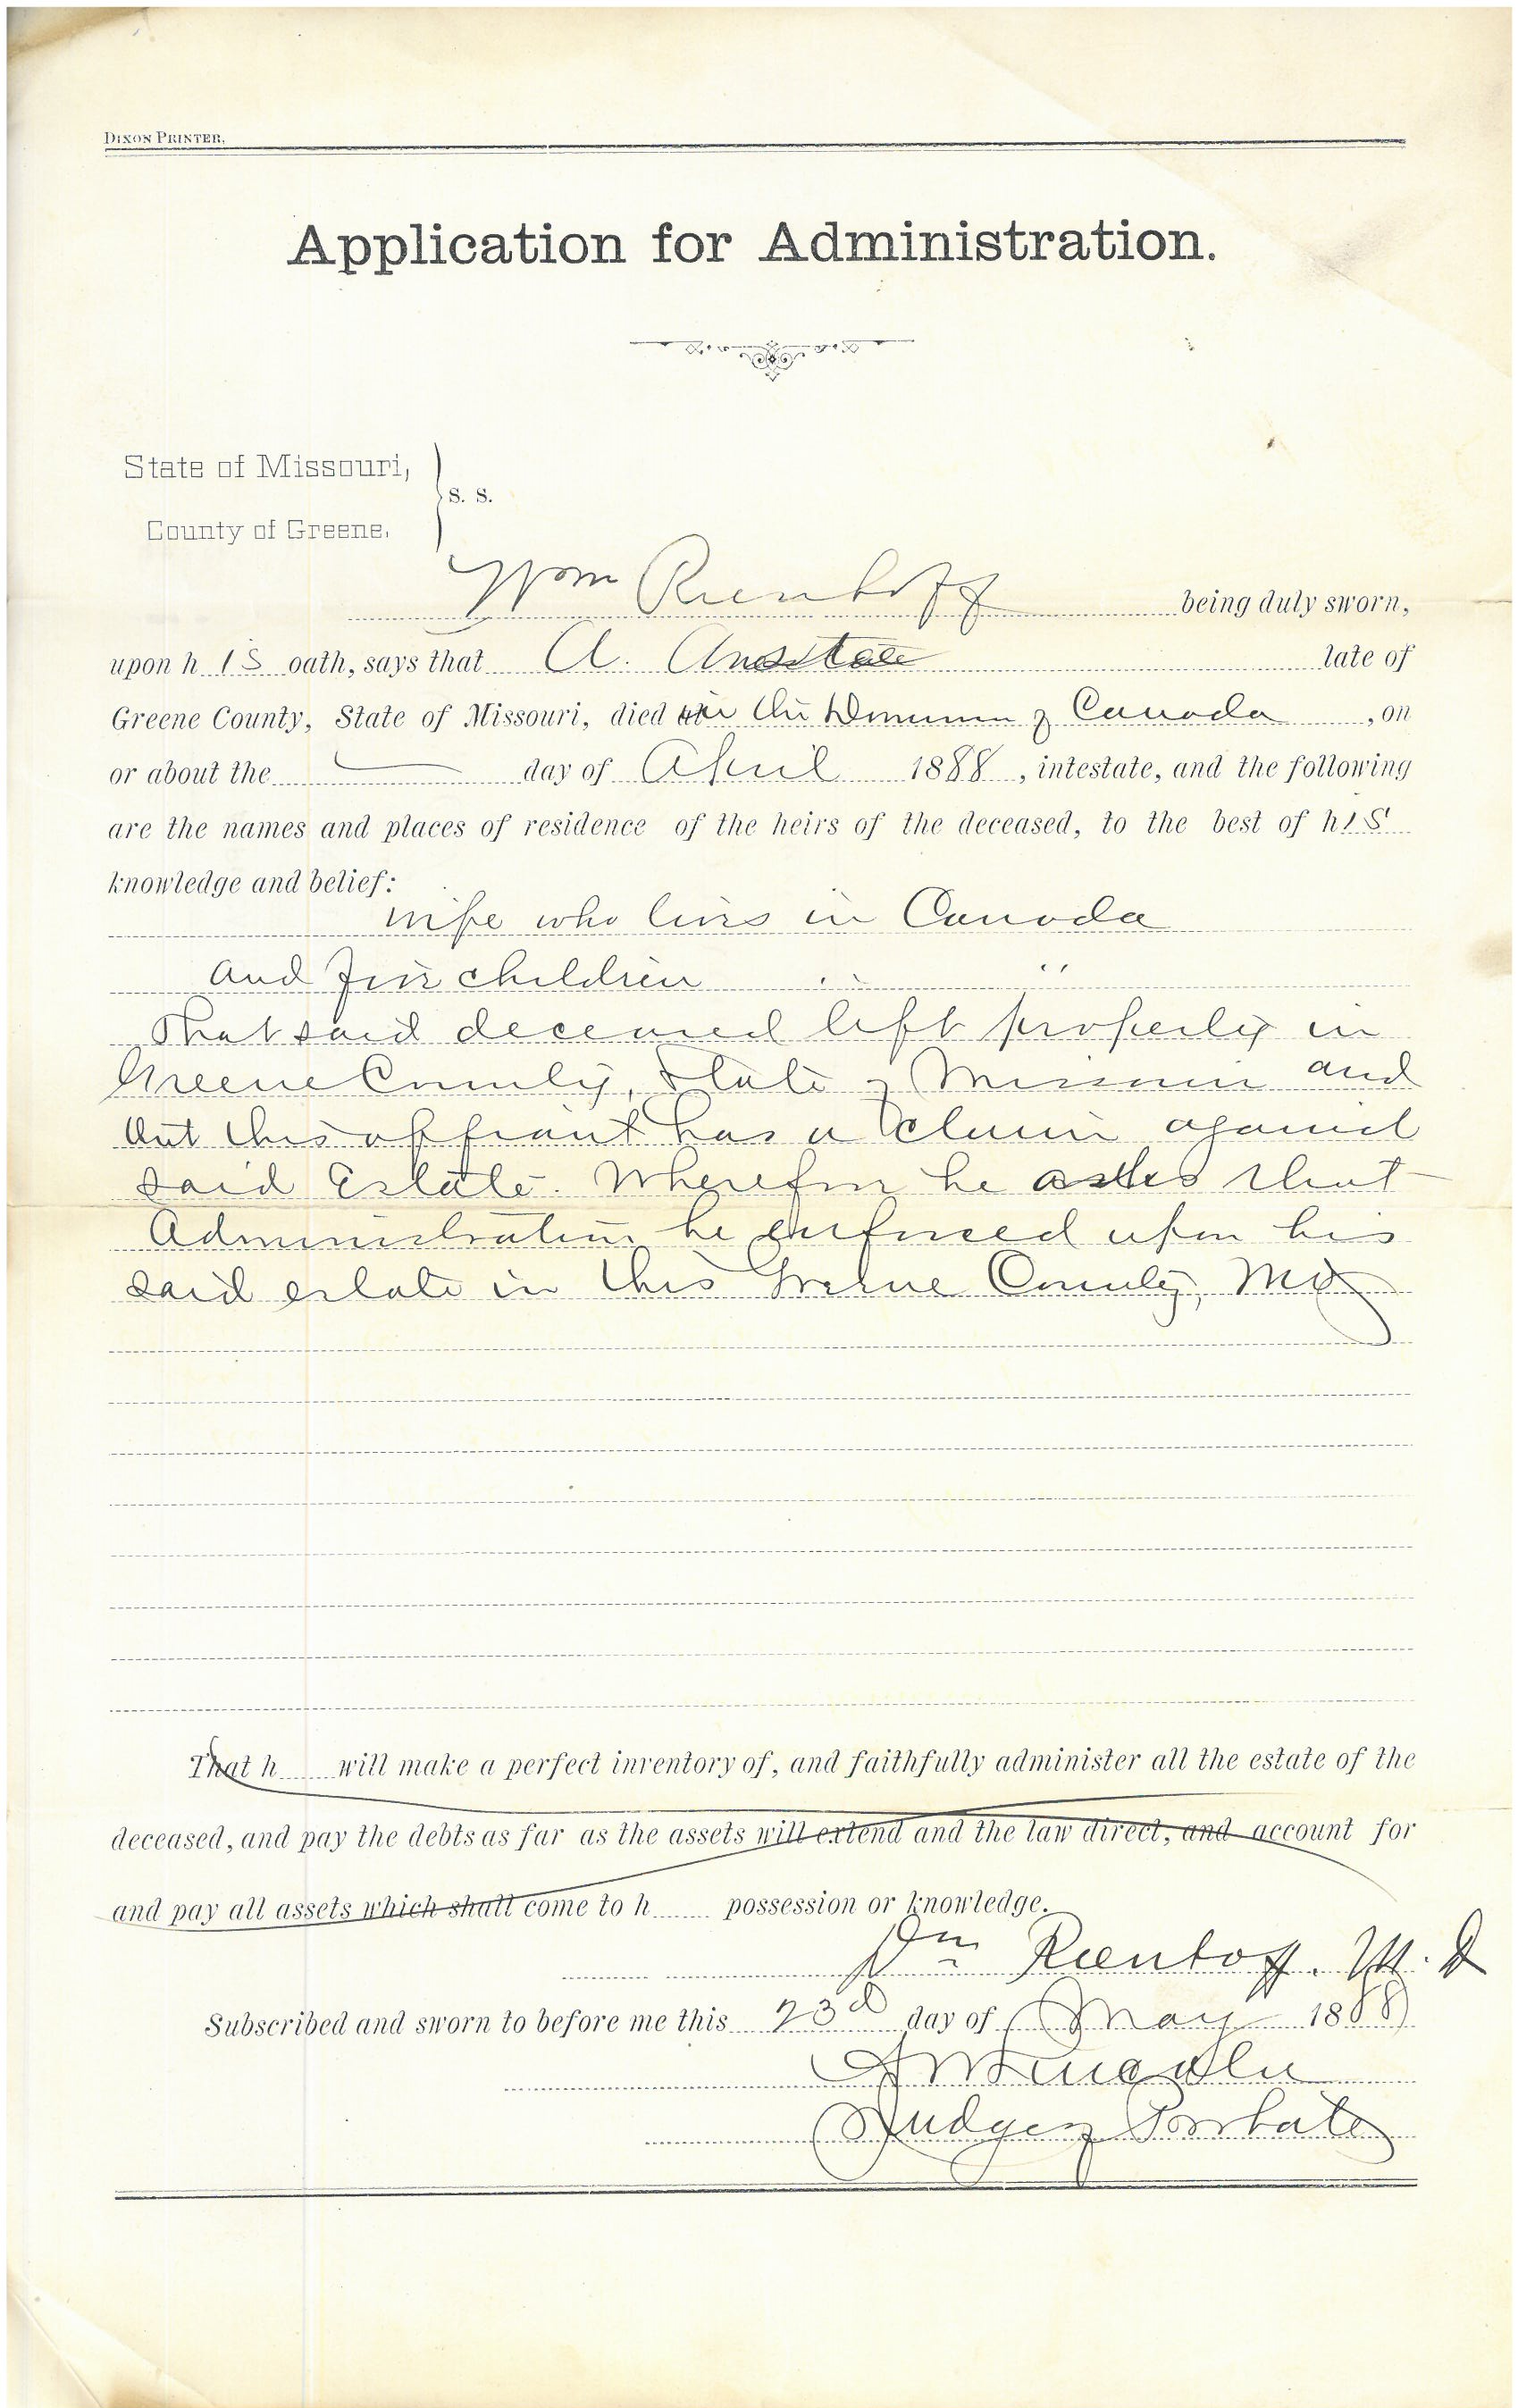 DIXON PRINTER.
Application for Administration.
State of Missouri,
S. S.
County of Greene.
Wm Rienhoff being duly sworn,
upon his oath, says that A. late of
Greene County, State of Missouri, died in the Dominion of Canada, on
or about the — day of April 1888, intestate, and the following
are the names and places of residence of the heirs of the deceased, to the best of his
knowledge and belief:
wife who lives in Canada
and children " "
That said deceased left property in
Greene County, State of Missouri and
that this affiant has a claim against
said Estate. Wherefore he asks that
Administration be enforced upon his
said estate in this Greene County, Mo
That h will make a perfect inventory of, and faithfully administer all the estate of the
deceased, and pay the debts as far as the assets will extend and the law direct, and account for
and pay all assets which shall come to h possession or knowledge.
Wm Rienhoff. M. D
Subscribed and sworn to before me this 23d day of May 1888
Lincoln
Judge of Probate